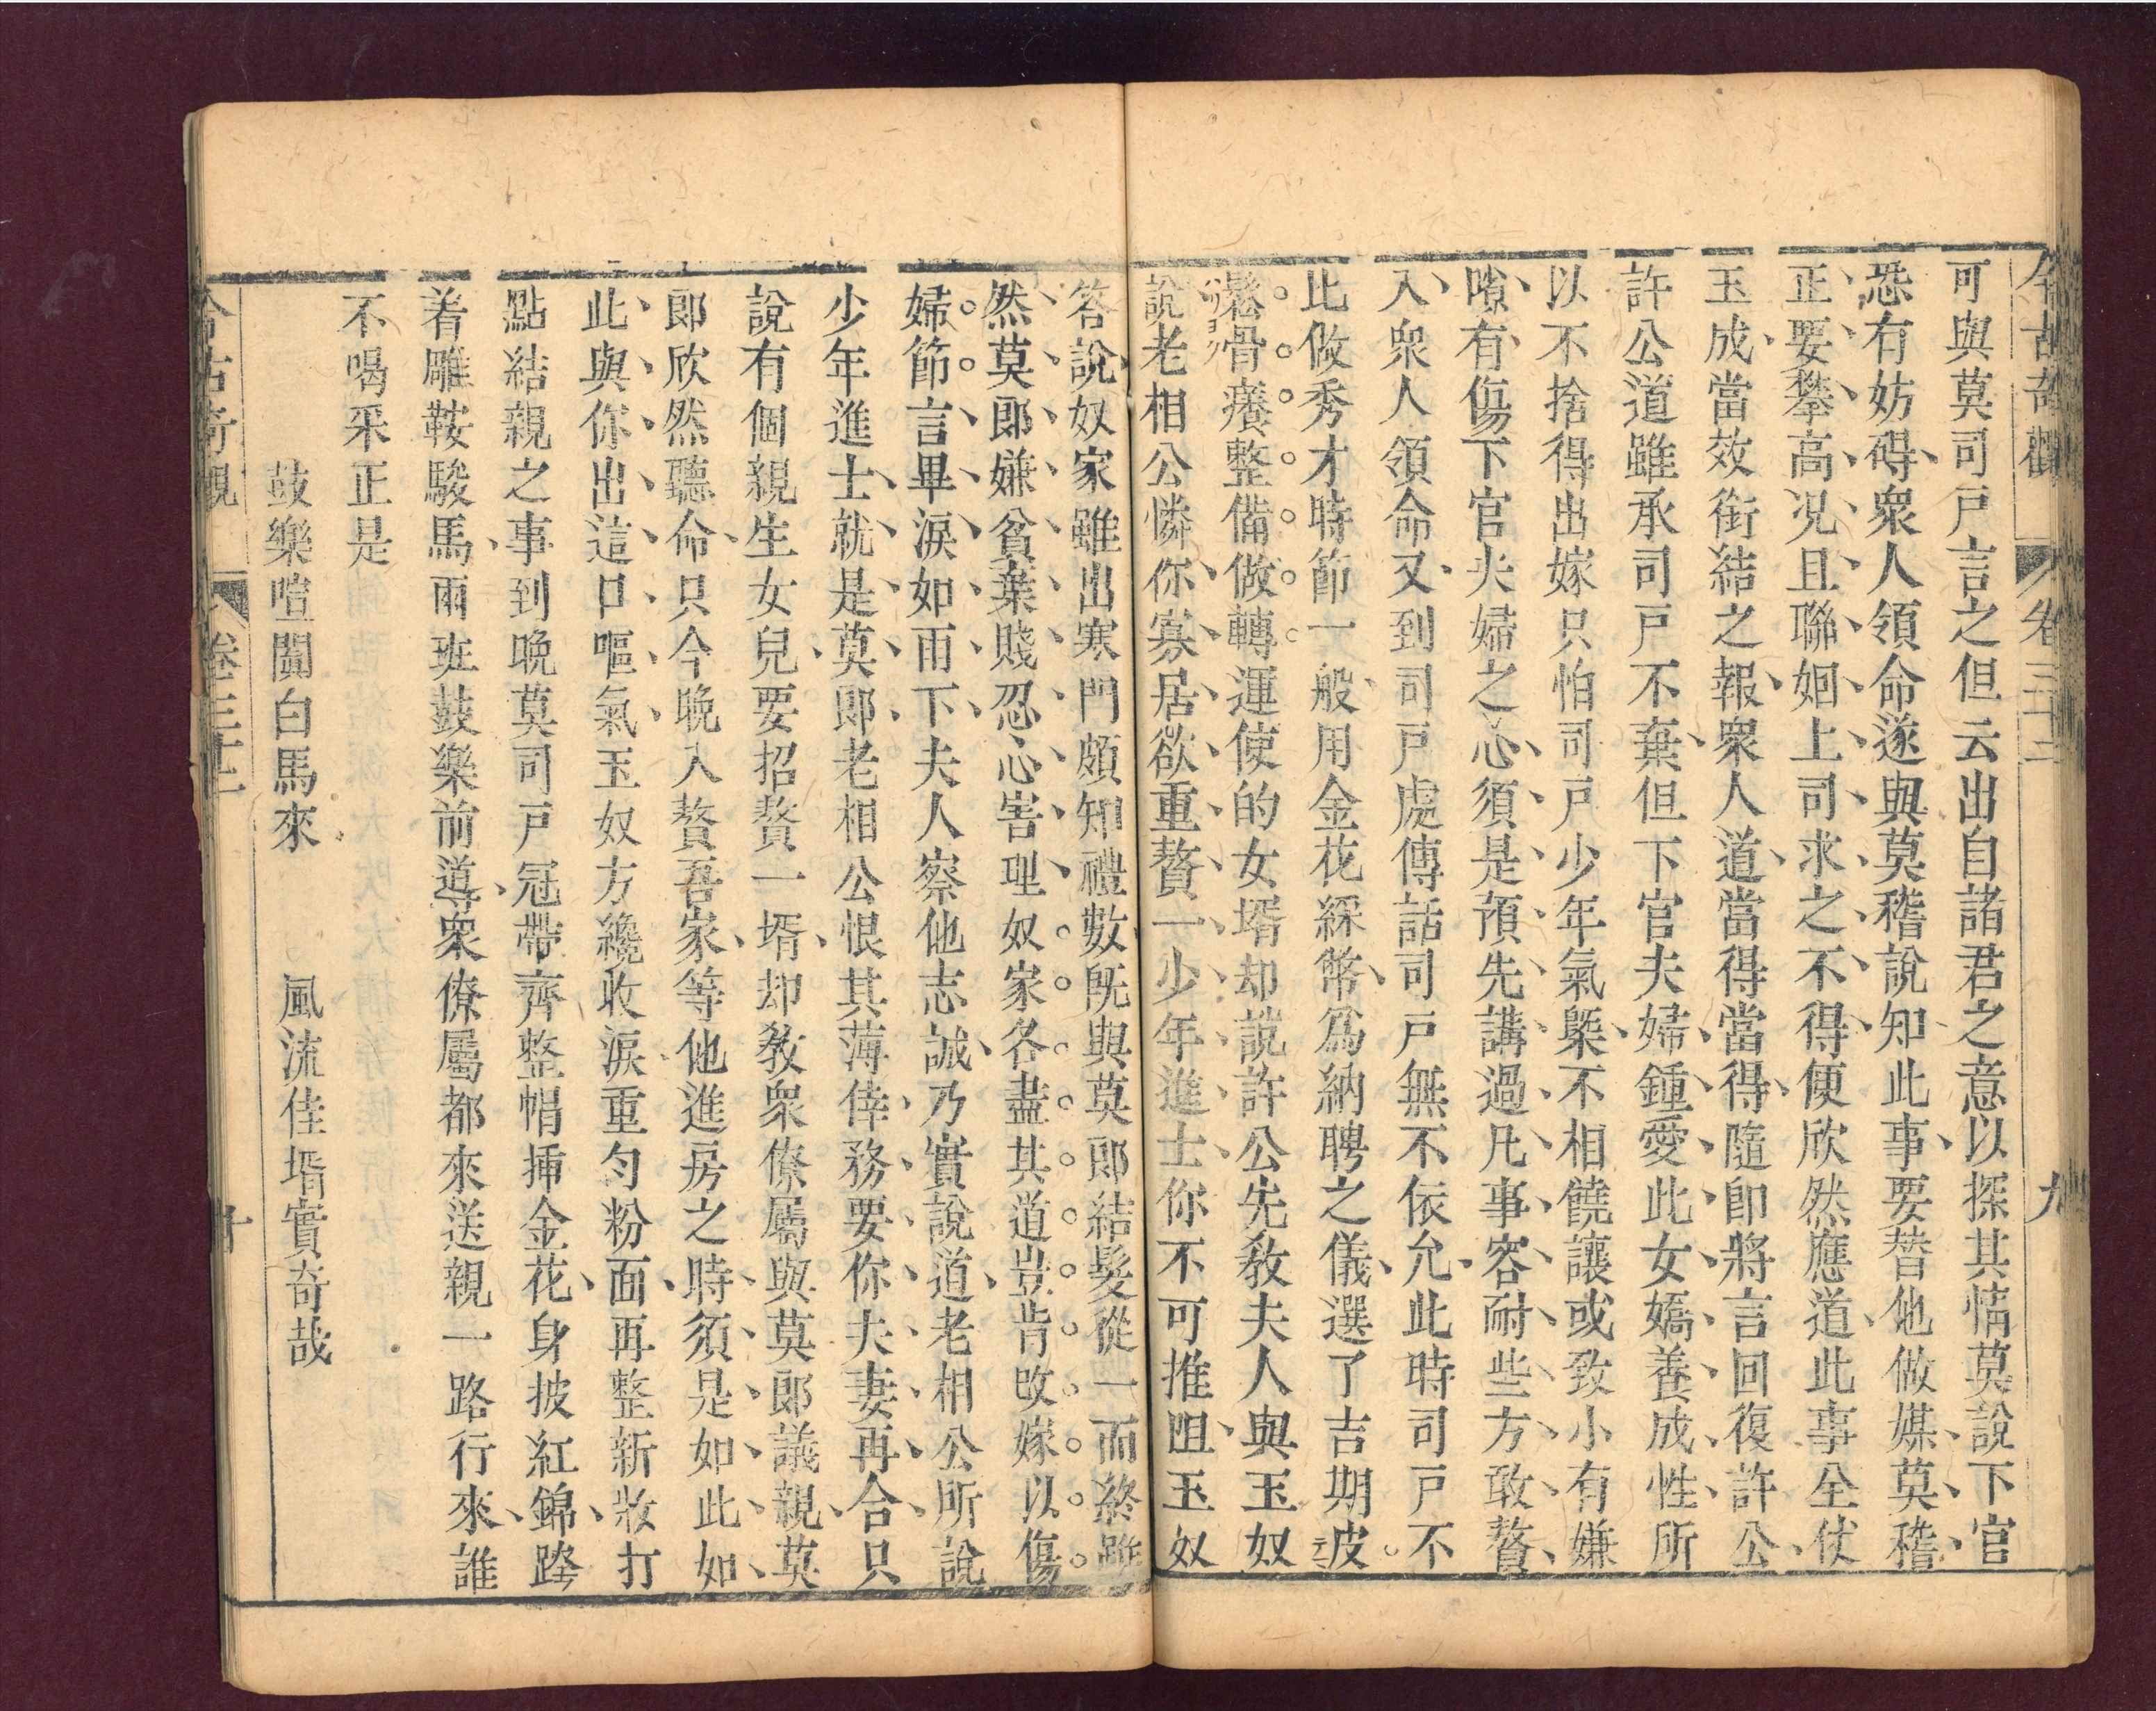 今古奇觀 卷三十二 九
可與莫司戶言之但云出自諸君之意以探其情莫說下官
恐有妨碍衆人領命遂與莫稽說知此事要替他做媒莫稽
正要攀高况且聯姻上司求之不得便欣然應道此事全仗
玉成當效銜結之報衆人道當得當得隨即將言回復許公
許公道雖承司戶不棄但下官夫婦鍾愛此女嬌養成性所
以不捨得出嫁只怕司戶少年氣槩不相饒讓或致小有嫌
隙有傷下官夫婦之心須是預先講過凡事容耐些方敢贅
入衆人領命又到司戶處傳話司戶無不依允此時司戶不
比做秀才時節一般用金花綵幣爲納聘之儀選了吉期皮
鬆骨癢整備做轉運使的女壻却說許公先教夫人與玉奴
說老相公憐你寡居欲重贅一少年進士你不可推阻玉奴
答說奴家雖出寒門頗知禮數旣與莫郎結髮從一而終雖
然莫郎嫌貧棄賤忍心害理奴家各盡其道豈肯改嫁以傷
婦節言畢淚如雨下夫人察他志誠乃實說道老相公所說
少年進士就是莫郎老相公恨其薄倖務要你夫妻再合只
說有個親生女兒要招贅一壻却教衆僚屬與莫郎議親莫
郎欣然聽命只今晚入贅吾家等他進房之時須是如此如
此與你出這口嘔氣玉奴方纔收淚重勻粉面再整新妝打
點結親之事到晚莫司戶冠帶齊整帽揷金花身披紅錦跨
着雕鞍駿馬兩班鼓樂前導衆僚屬都來送親一路行來誰
不喝采正是
鼓樂喧闐白馬來 風流佳壻實奇哉
今古奇觀 卷三十二 十